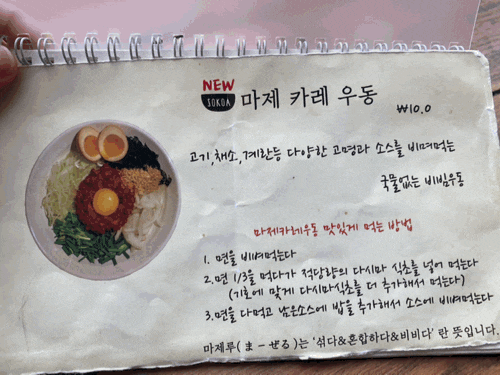 NEW
SOKOA
마제 카레 우동 ₩10.0
고기,채소,계란등 다양한 고명과 소스를 비벼먹는
국물없는 비빔우동
마제카레우동 맛있게 먹는 방법
1. 면을 비벼먹는다
2. 면 1/3을 먹다가 적당량의 다시마 식초를 넣어 먹는다
(기호에 맞게 다시마식초를 더 추가해서 먹는다)
3. 면을 다먹고 남은소스에 밥을 추가해서 소스에 비벼먹는다
마제루(まーぜる)는 '섞다&혼합하다&비비다' 란 뜻입니다.